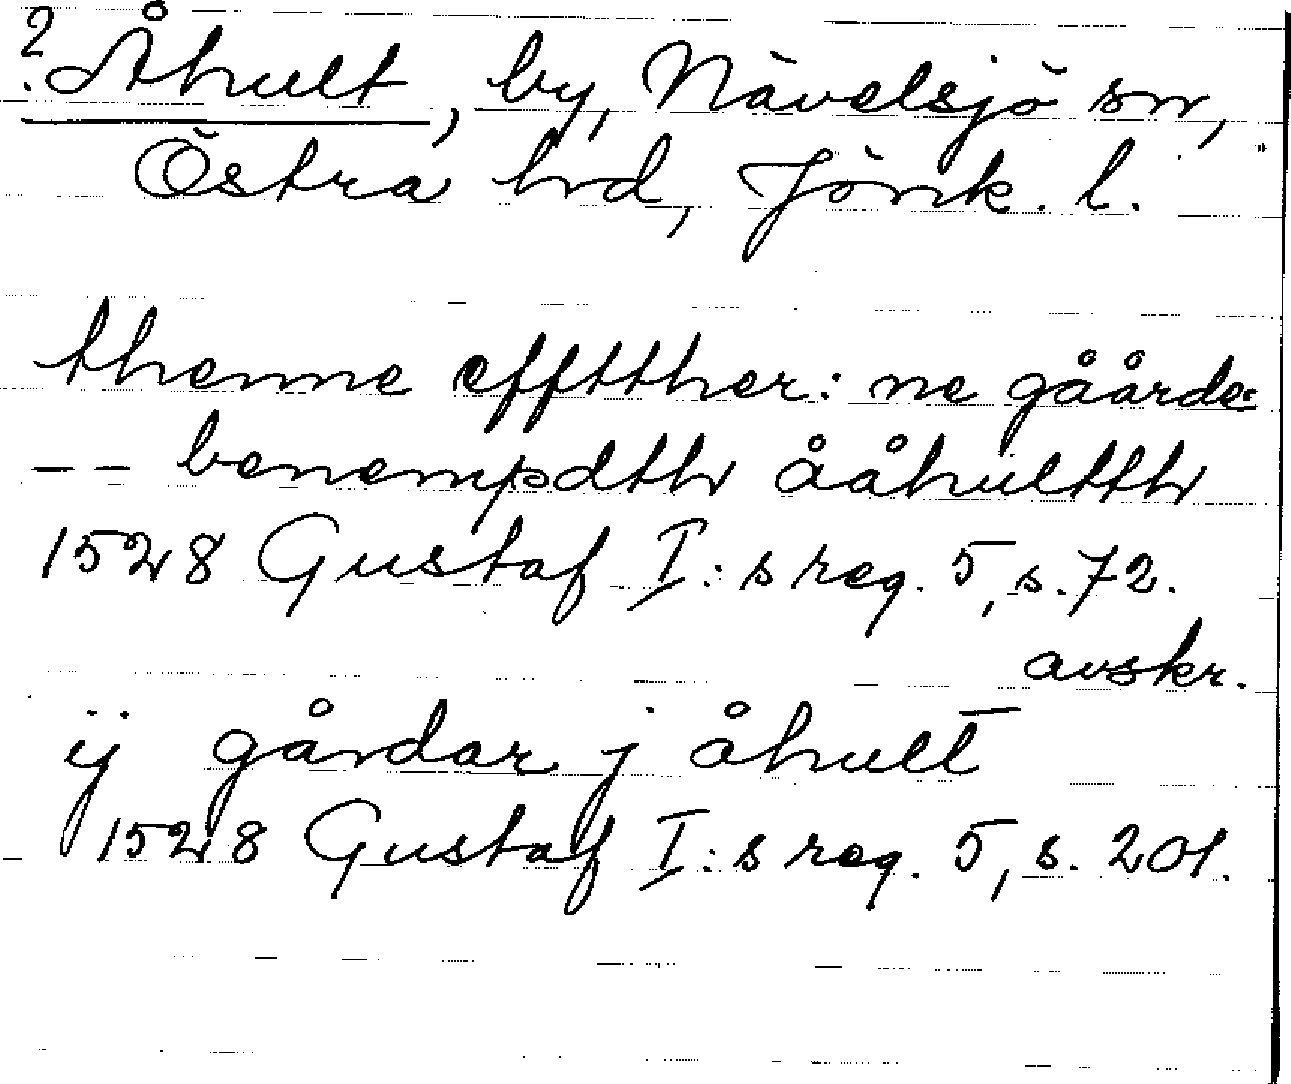 ? Åhult, by, Nävelsjö sn,
Östra hd, Jönk. l.
thenne efftther: ne gåårde
-- benempdth ååhulttth
1528 Gustaf I:s reg. 5, s. 72.
avskr.
ij gårdar j åhult
1528 Gustaf I:s reg. 5, s. 201.